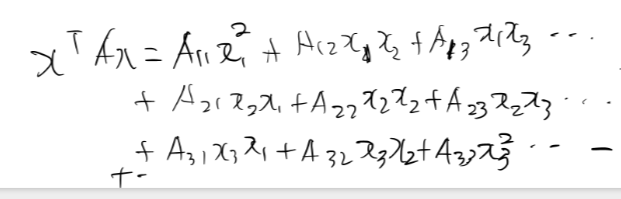 xᵀAx = A₁₁x₁² + A₁₂x₁x₂ + A₁₃x₁x₃ ---.
+ A₂₁x₂x₁ + A₂₂x₂x₂ + A₂₃x₂x₃ ....
+ A₃₁x₃x₁ + A₃₂x₃x₂ + A₃₃x₃² -- –
+-